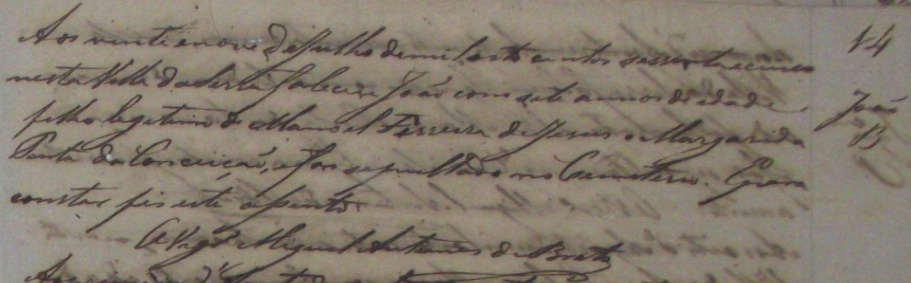 Aos vinte e nove de Julho de mil oito centos sessenta e cinco 14
nesta Villa da Serra falecio João com sete annos de idade, João
filho legitimo de Manoel Ferreira de Jesus e Margarida B
Pinta da Conceição, e foi sepultado no Cemiterio. E para
constar fis este assento
O Vigº Miguel Antunes de Brito